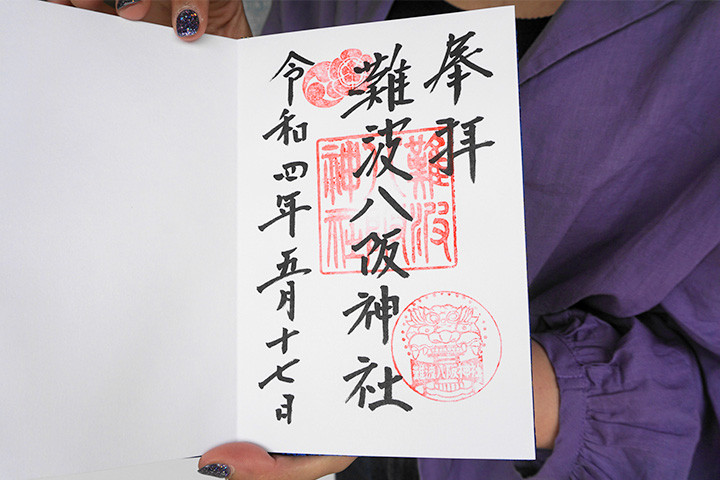 奉拝
難波八阪神社
令和四年五月十七日
難波
八阪
神社
難波八阪神社